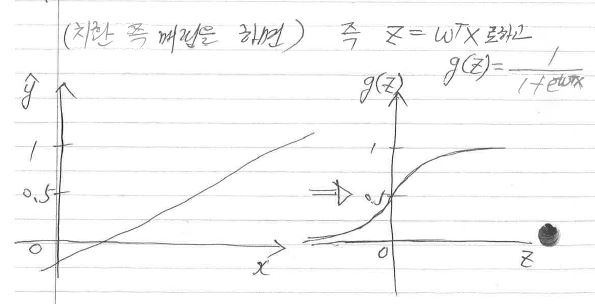 (치환 쪽 매핑을 하면) 즉 Z = wᵀx 로하고
g(z) = 1 / 1+e^wᵀx
ŷ
1
0.5
0
x
⇒
g(z)
1
0.5
0
Z